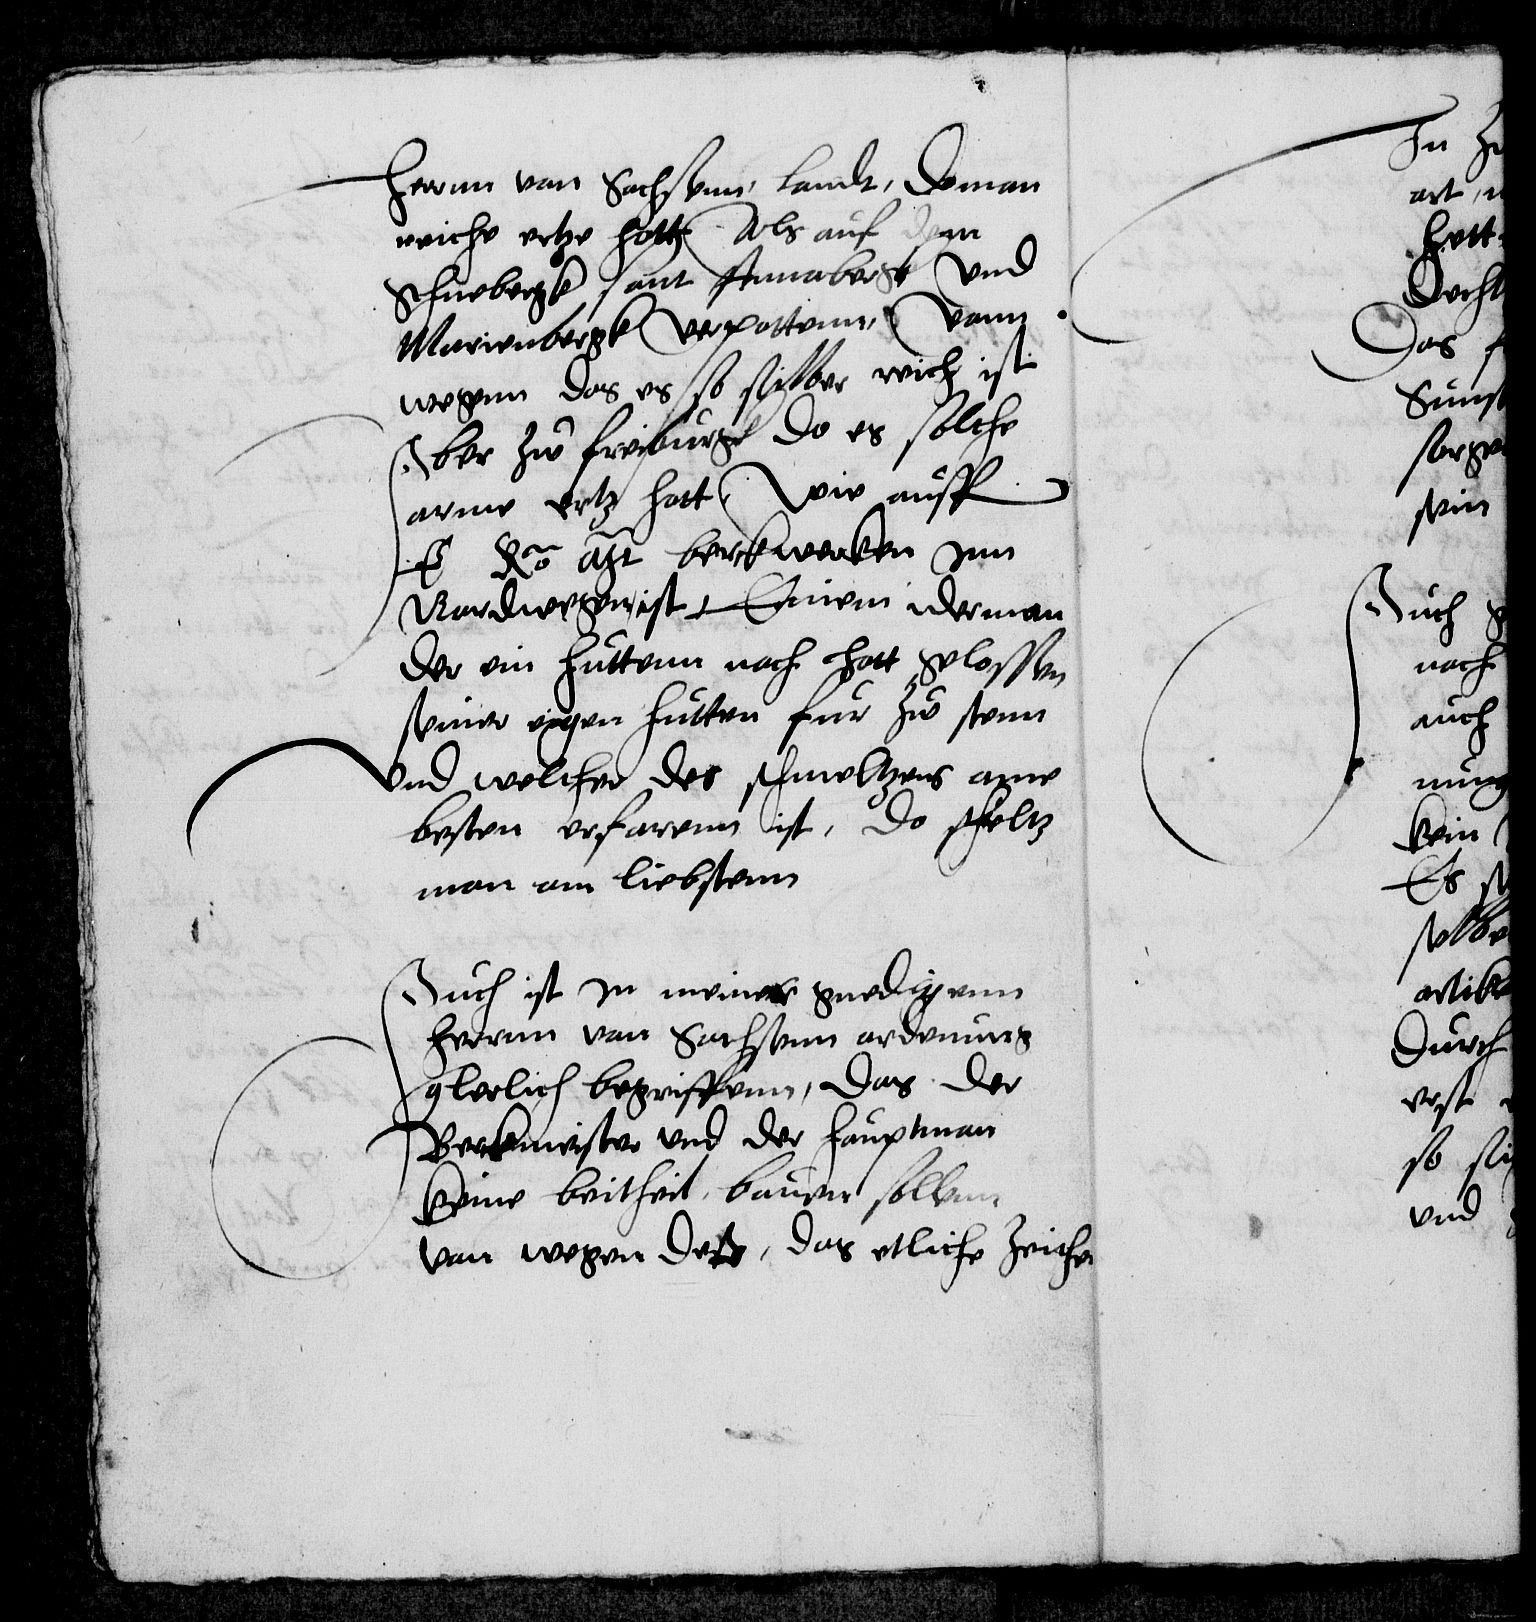 hernn van Sachssenn, landt, Do man
reiche ertze hott Als auf dem
Schnebergk sant Annabergk und
Marienbergk verpottenn, vann
wegenn das es so silber reich ist
Aber zw freiburgk do es solche
arme ertz hatt, wie auff
E Ko Mt berckwerken Inn
Nordwegen ist, Einem iderman
der ein huttenn nach hatt gelossen
seiner eigen hutten fur zw stenn
und welcher des schmeltzens ame
besten erfarenn ist, do scheltz
man am liebstenn
Auch ist In meiner gnedigenn
hernn van Sachssenn ordenung
glerlich begriffenn, Das der
Berkmeister und der hauptman
keine beitheil bauen sollenn
van wegen des, das etliche Zeichen
In
art
hett
Das
Sunst
sein
Auch
nach
auch
kein
Es
selbe
Durch
erst
so
und